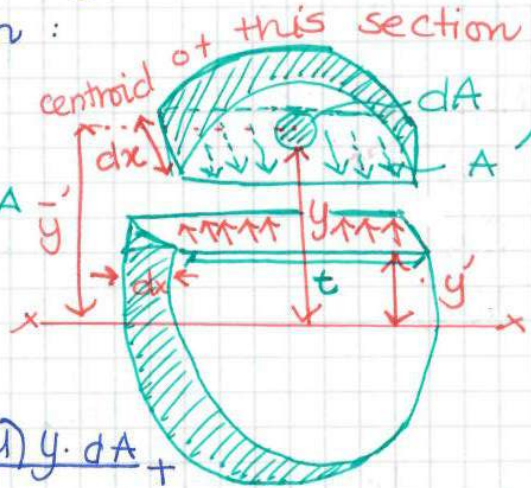 n :
centroid of this section
dA
dx
A
A
ȳ'
y
dx
t
y'
x
x
1) y. dA +